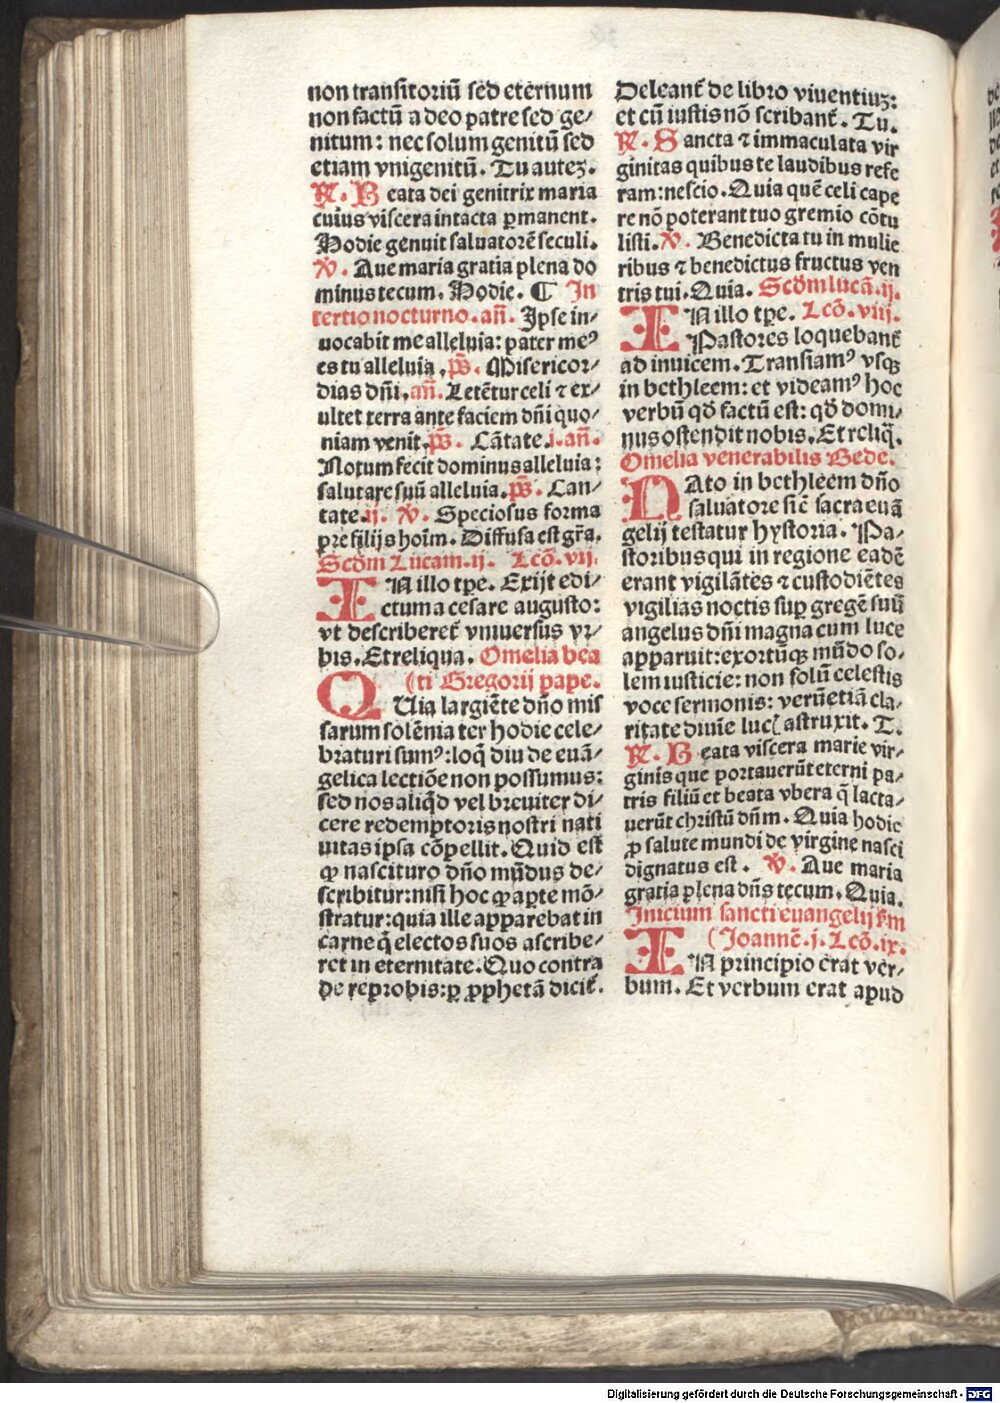 non transitoriū sed eternum
non factū a deo patre sed ge⸗
nitum: nec solum genitū sed
etiam vnigenitū. Tu autez.
R. Beata dei genitrix maria
cuius viscera intacta ꝑmanent.
Hodie genuit saluatorē seculi.
V. Aue maria gratia plena do
minus tecum. Hodie. ¶ In
tertio nocturno. an̄. Ipse in⸗
uocabit me alleluia: pater meꝰ
es tu alleluia. ps̄. Misericor⸗
dias dn̄i. an̄. Letēt̄ur celi ⁊ ex⸗
ultet terra ante faciem dn̄i quo⸗
niam venit. ps̄. Cātate.i. an̄.
Notum fecit dominus alleluia:
salutare suū alleluia. ps̄. Can⸗
tate.ij. V. Speciosus forma
pre filijs hoīm. Diffusa est gr̄a.
Scd̄m Lucam.ij. Lcō.vij.
IN illo tp̄e. Exijt edi⸗
ctum a cesare augusto:
vt describeret̄ vniuersus or⸗
bis. Et reliqua. Omelia bea
(ti Gregorij pape.
QUia largiēte dn̄o mis
sarum solēnia ter hodie cele⸗
braturi sumꝰ: loq̄ diu de euā⸗
gelica lectiōe non possumus:
sed nos aliqd̄ vel breuiter di⸗
cere redemptoris nostri nati
uitas ipsa cōpellit. Quid est
ꝙ nascituro dn̄o mūdus de⸗
scribitur: nisi hoc ꝙ aꝑte mō⸗
stratur: quia ille apparebat in
carne q̄ electos suos ascribe⸗
ret in eternitate. Quo contra
de reprobis: ꝑ ꝓphetā dicit̄.
Deleant̄ de libro viuentiuꝫ:
et cū iustis nō scribant̄. Tu.
R. Sancta ⁊ immaculata vir
ginitas quibus te laudibus refe
ram: nescio. Quia quē celi cape
re nō poterant tuo gremio cōtu
listi. V. Benedicta tu in mulie
ribus ⁊ benedictus fructus ven
tris tui. Quia. Scd̄m lucā.ij.
IN illo tp̄e. Lcō.viij.
Pastores loquebant̄
ad inuicem. Transiamꝰ vsqꝫ
in bethleem: et videamꝰ hoc
verbū qd̄ factū est: qd̄ domi⸗
nus ostendit nobis. Et reliq̄.
Omelia venerabilis Bede.
NAto in bethleem dn̄o
saluatore sic̄ sacra euā
gelij testatur hystoria. Pa⸗
storibus qui in regione eadē
erant vigilātes ⁊ custodiētes
vigilias noctis suꝑ gregē suū
angelus dn̄i magna cum luce
apparuit: exortūqꝫ mūdo so⸗
lem iusticie: non solū celestis
voce sermonis: verūetiā cla⸗
ritate diuīe luc̄ astruxit. T.
R. Beata viscera marie vir⸗
ginis que portauerūt eterni pa⸗
tris filiū et beata vbera q̄ lacta⸗
uerūt christū dn̄m. Quia hodie
ꝓ salute mundi de virgine nasci
dignatus est. V. Aue maria
gratia plena dn̄s tecum. Quia.
Inicium sancti euangelij s̄m
(Joannē.j. Lcō.ix.
IN principio erat ver⸗
bum. Et verbum erat apud
Digitalisierung gefördert durch die Deutsche Forschungsgemeinschaft - DFG